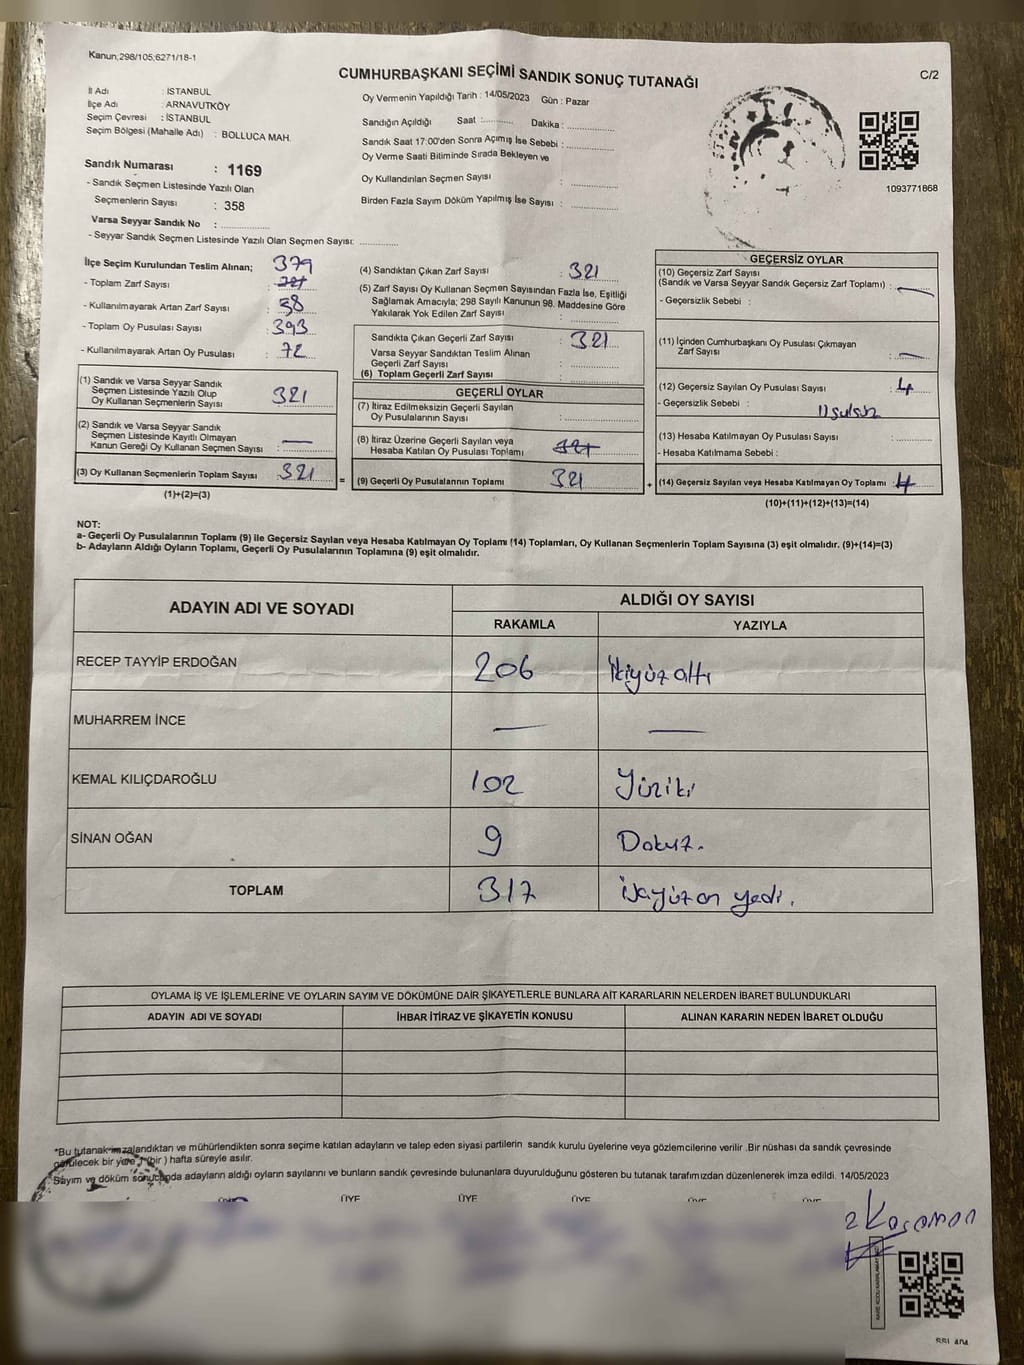 Kanun;298/105;6271/18-1
CUMHURBAŞKANI SEÇİMİ SANDIK SONUÇ TUTANAĞI
C/2
İl Adı : İSTANBUL
İlçe Adı : ARNAVUTKÖY
Seçim Çevresi : İSTANBUL
Seçim Bölgesi (Mahalle Adı) : BOLLUCA MAH.
Sandık Numarası : 1169
- Sandık Seçmen Listesinde Yazılı Olan
Seçmenlerin Sayısı : 358
Varsa Seyyar Sandık No :
- Seyyar Sandık Seçmen Listesinde Yazılı Olan Seçmen Sayısı:
Oy Vermenin Yapıldığı Tarih : 14/05/2023 Gün : Pazar
Sandığın Açıldığı Saat : Dakika :
Sandık Saat 17:00'den Sonra Açımış İse Sebebi :
Oy Verme Saati Bitiminde Sırada Bekleyen ve
Oy Kullandırılan Seçmen Sayısı :
Birden Fazla Sayım Döküm Yapılmış İse Sayısı :
1093771868
İlçe Seçim Kurulundan Teslim Alınan; 379
- Toplam Zarf Sayısı :
- Kullanılmayarak Artan Zarf Sayısı : 58
- Toplam Oy Pusulası Sayısı : 393
- Kullanılmayarak Artan Oy Pusulası : 72
(1) Sandık ve Varsa Seyyar Sandık
Seçmen Listesinde Yazılı Olup
Oy Kullanan Seçmenlerin Sayısı : 321
(2) Sandık ve Varsa Seyyar Sandık
Seçmen Listesinde Kayıtlı Olmayan
Kanun Gereği Oy Kullanan Seçmen Sayısı : —
(3) Oy Kullanan Seçmenlerin Toplam Sayısı : 321
(1)+(2)=(3)
(4) Sandıktan Çıkan Zarf Sayısı : 321
(5) Zarf Sayısı Oy Kullanan Seçmen Sayısından Fazla İse, Eşitliği
Sağlamak Amacıyla; 298 Sayılı Kanunun 98. Maddesine Göre
Yakılarak Yok Edilen Zarf Sayısı :
Sandıkta Çıkan Geçerli Zarf Sayısı : 321
Varsa Seyyar Sandıktan Teslim Alınan
Geçerli Zarf Sayısı :
(6) Toplam Geçerli Zarf Sayısı :
GEÇERLİ OYLAR
(7) İtiraz Edilmeksizin Geçerli Sayılan
Oy Pusulalarının Sayısı :
(8) İtiraz Üzerine Geçerli Sayılan veya
Hesaba Katılan Oy Pusulası Toplamı : 321
= (9) Geçerli Oy Pusulalarının Toplamı 321
GEÇERSİZ OYLAR
(10) Geçersiz Zarf Sayısı
(Sandık ve Varsa Seyyar Sandık Geçersiz Zarf Toplamı) : —
- Geçersizlik Sebebi :
(11) İçinden Cumhurbaşkanı Oy Pusulası Çıkmayan
Zarf Sayısı : —
(12) Geçersiz Sayılan Oy Pusulası Sayısı : 4
- Geçersizlik Sebebi :
(13) Hesaba Katılmayan Oy Pusulası Sayısı :
- Hesaba Katılmama Sebebi :
+ (14) Geçersiz Sayılan veya Hesaba Katılmayan Oy Toplamı : 4
(10)+(11)+(12)+(13)=(14)
NOT:
a- Geçerli Oy Pusulalarının Toplamı (9) ile Geçersiz Sayılan veya Hesaba Katılmayan Oy Toplamı (14) Toplamları, Oy Kullanan Seçmenlerin Toplam Sayısına (3) eşit olmalıdır. (9)+(14)=(3)
b- Adayların Aldığı Oyların Toplamı, Geçerli Oy Pusulalarının Toplamına (9) eşit olmalıdır.
ADAYIN ADI VE SOYADI ALDIĞI OY SAYISI
RAKAMLA YAZIYLA
RECEP TAYYİP ERDOĞAN 206 İkiyüz altı
MUHARREM İNCE — —
KEMAL KILIÇDAROĞLU 102 Yüziki
SİNAN OĞAN 9 Dokuz.
TOPLAM 317 üçyüz on yedi.
OYLAMA İŞ VE İŞLEMLERİNE VE OYLARIN SAYIM VE DÖKÜMÜNE DAİR ŞİKAYETLERLE BUNLARA AİT KARARLARIN NELERDEN İBARET BULUNDUKLARI
ADAYIN ADI VE SOYADI İHBAR İTİRAZ VE ŞİKAYETİN KONUSU ALINAN KARARIN NEDEN İBARET OLDUĞU
*Bu tutanak imzalandıktan ve mühürlendikten sonra seçime katılan adayların ve talep eden siyasi partilerin sandık kurulu üyelerine veya gözlemcilerine verilir .Bir nüshası da sandık çevresinde
görülecek bir yere 1 (bir ) hafta süreyle asılır.
Sayım ve döküm sonucunda adayların aldığı oyların sayılarını ve bunların sandık çevresinde bulunanlara duyurulduğunu gösteren bu tutanak tarafımızdan düzenlenerek imza edildi. 14/05/2023
ÜYE ÜYE ÜYE